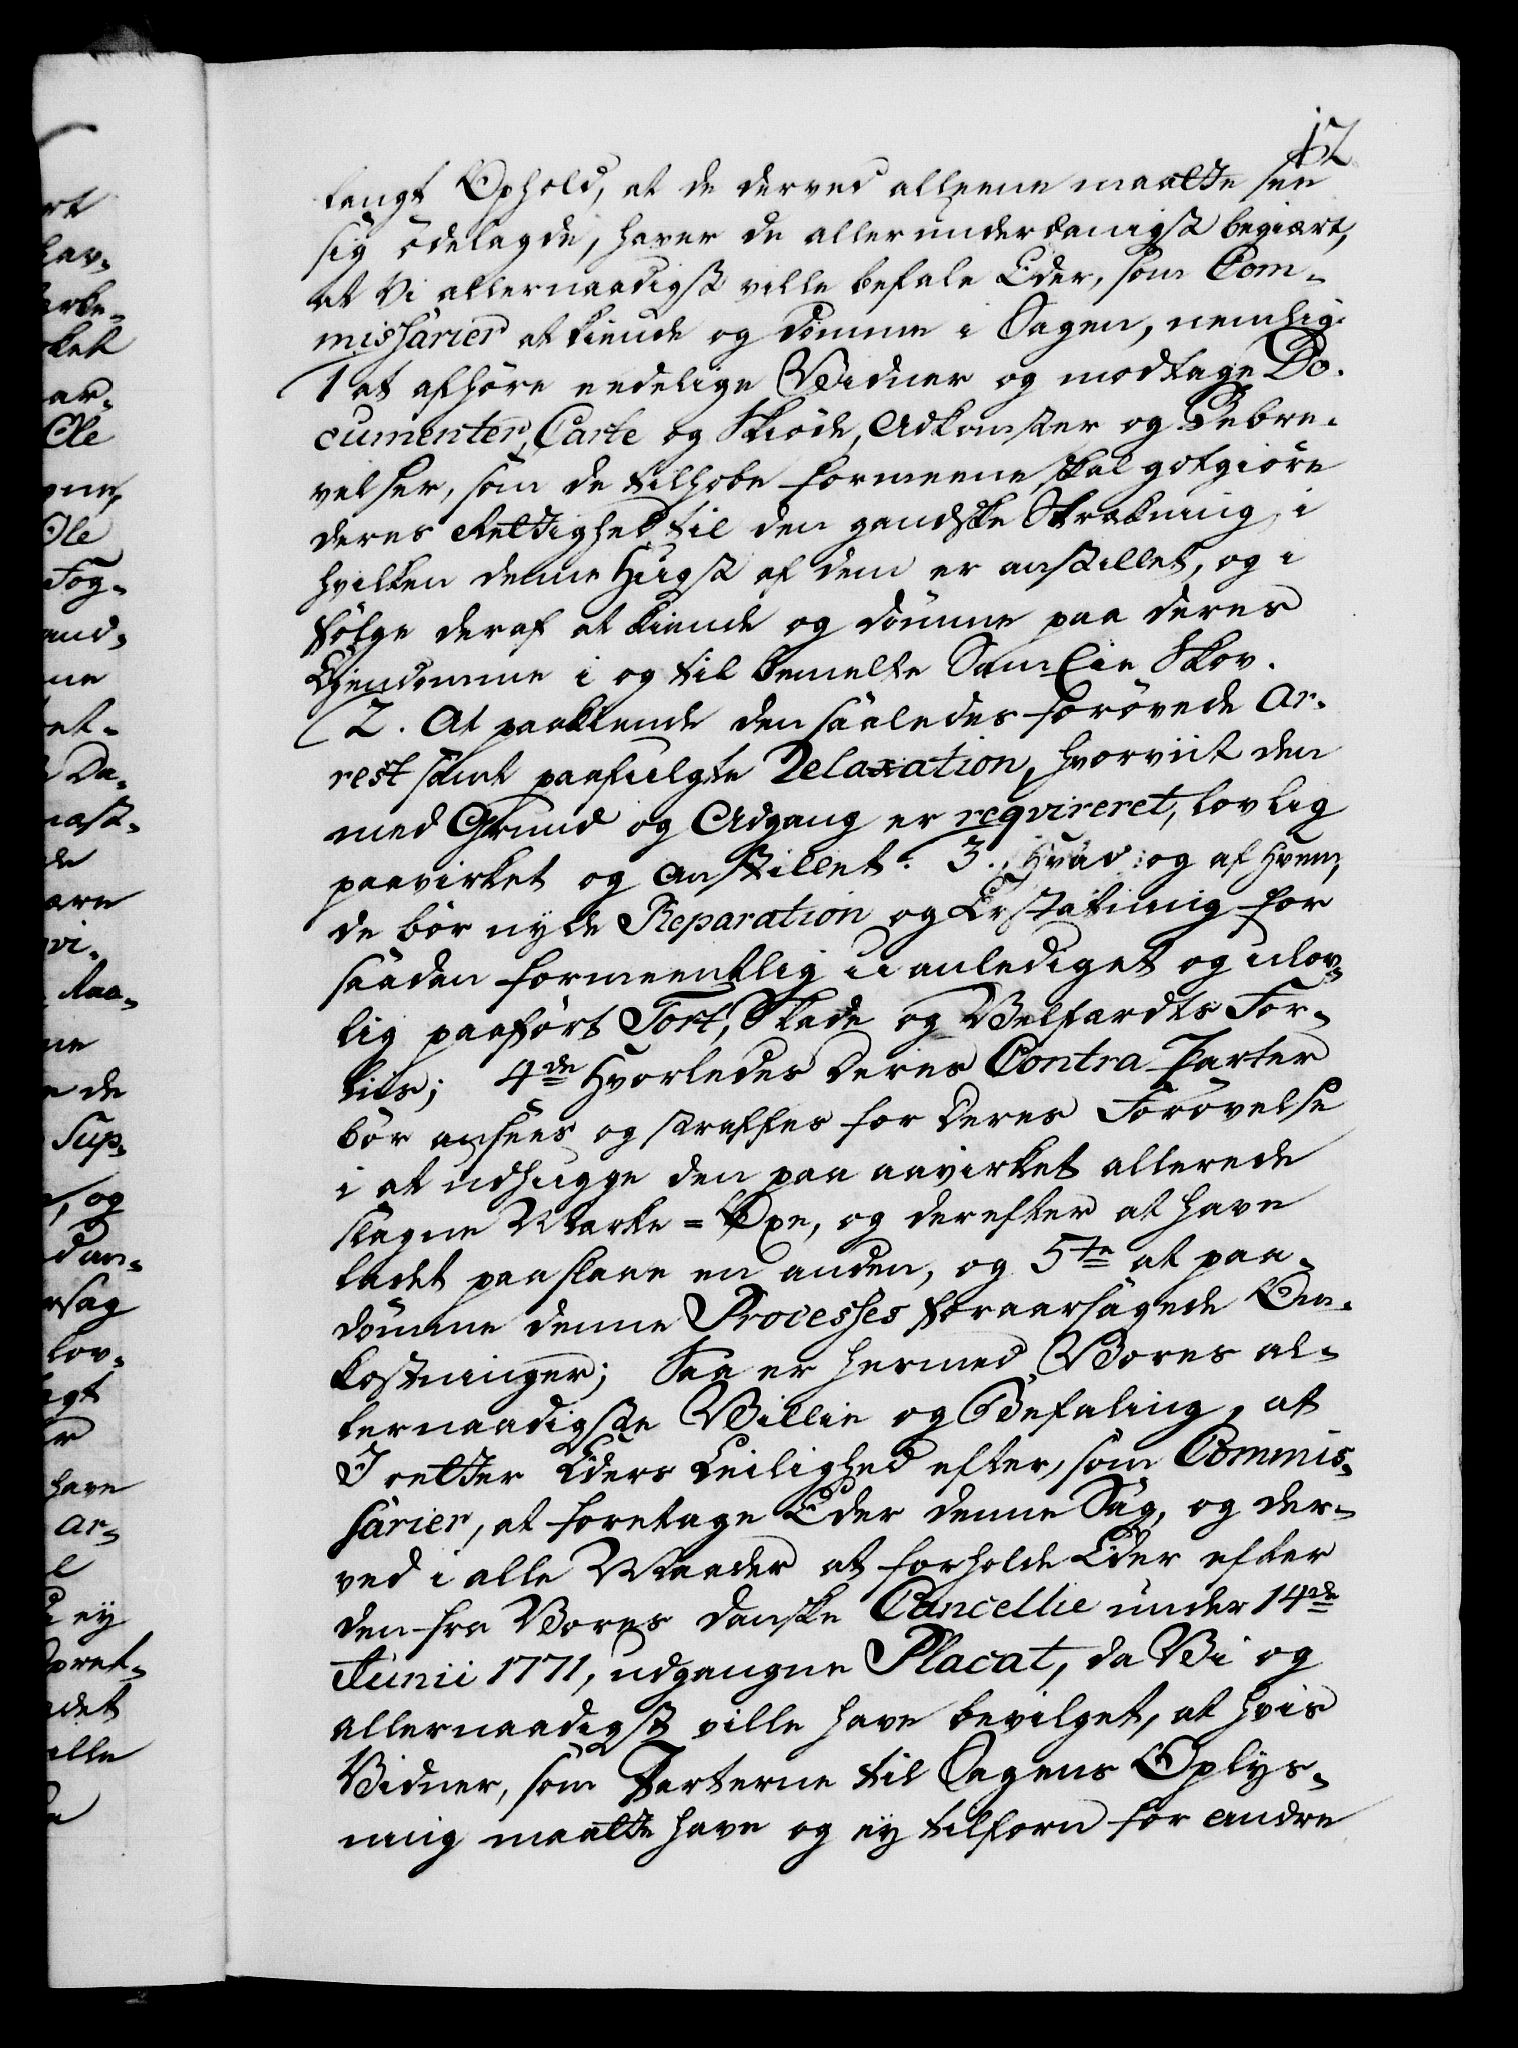 12
langt Ophold, at de derved alleene maatte see
sig ödelagde, haver de allerunderdanigst begiært,
at Vi allernaadigst ville befale Eder, som Com-
missarier at kiende og dömme i Sagen, nemlig:
1 at afhöre eedelige Vidner og modtage Do-
cumenter, Carte og Skiöde, Adkomster og Bebre-
velser, som de tilhobe formeene skal gotgiöre
deres Rettighed til den gandske Strækning, i
hvilken denne Hugst af dem er anstillet, og i
fölge deraf at kiende og dömme paa deres
Eyendomme i og til bemelte Sameie Skov.
2. At paakiende den saaledes forövede Ar-
rest samt paafulgte Relaxation, hvorviit den
med Grund og Adgang er reqvireret, lovlig
paavirket og anstillet. 3. Hvad og af hvem,
de bör nyde Reparation og Erstatning for
saadan formeentlig uanlediget og ulov-
lig paafört Tort, Skade og Velfærdts For-
liis; 4de Hvorledes deres Contra Parter
bör ansees og straffes for deres Forövelse
i at udhugge den paa aavirket allerede
slagne Mærke-Öxe, og derefter at have
ladet paaslaae en anden, og 5te at paa-
dömme denne Processes foraarsagede Om-
kostninger; Saa er hermed Vores al-
lernaadigste Villie og Befaling, at
I retter Eders Leilighed efter, som Commis-
sarier, at foretage Eder denne Sag, og der-
ved i alle Maader at forholde Eder efter
den fra Vores danske Cancellie under 14de
Junii 1771, udgangne Placat, da Vi og
allernaadigst ville have bevilget, at hvis
Vidner, som Parterne til Sagens Oplys-
ning maatte have og ey tilforn for andre